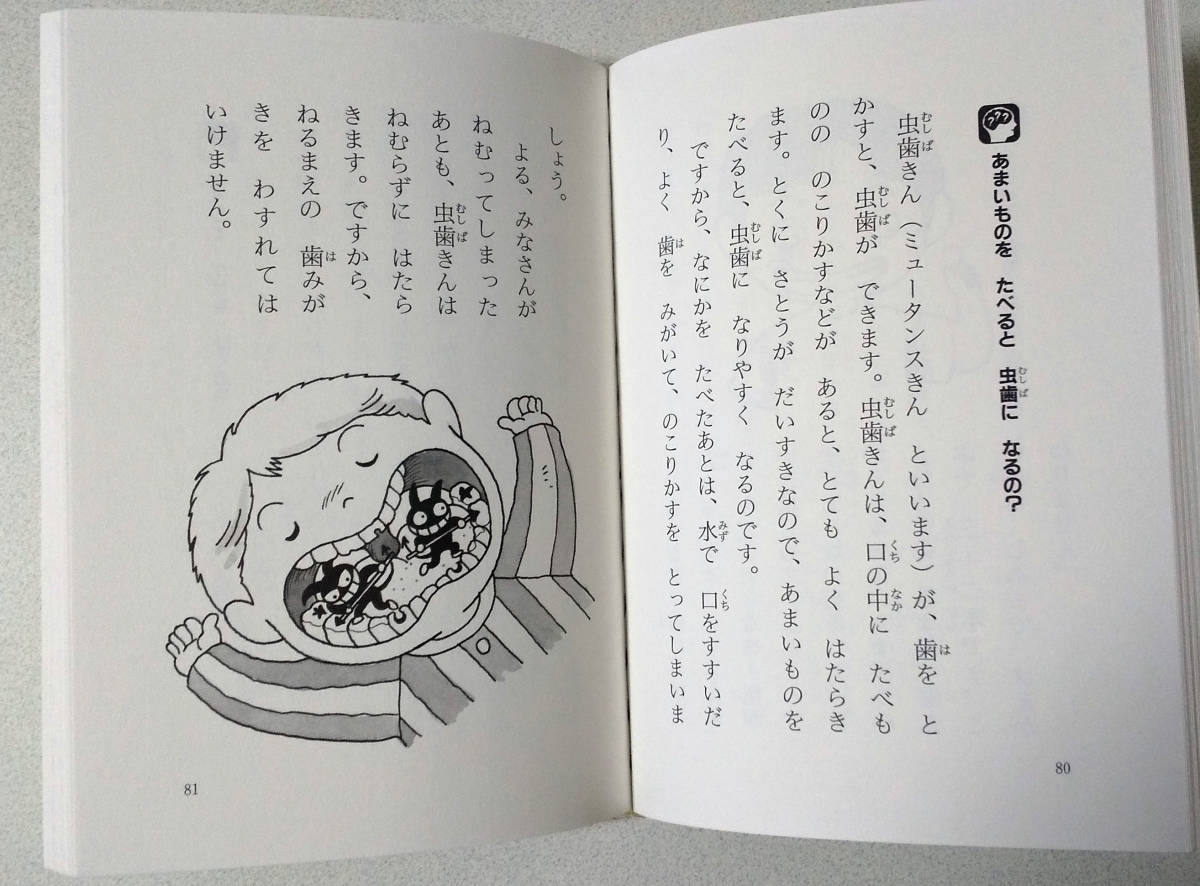 あまいものを たべると 虫歯に なるの?
虫歯きん(ミュータンスきん といいます)が、歯を と
かすと、虫歯が できます。虫歯きんは、口の中に たべも
のの のこりかすなどが あると、とても よく はたらき
ます。とくに さとうが だいすきなので、あまいものを
たべると、虫歯に なりやすく なるのです。
ですから、なにかを たべたあとは、水で 口をすすいだ
り、よく 歯を みがいて、のこりかすを とってしまいま
80
しょう。
よる、みなさんが
ねむってしまった
あとも、虫歯きんは
ねむらずに はたら
きます。ですから、
ねるまえの 歯みが
きを わすれては
いけません。
81